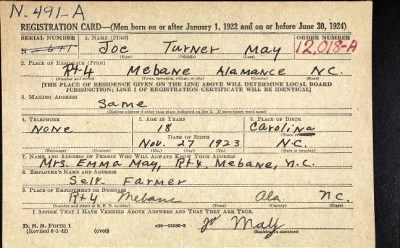 N. 491-A
REGISTRATION CARD—(Men born on or after January 1, 1922 and on or before June 30, 1924)
SERIAL NUMBER 1. NAME (Print) ORDER NUMBER
N Joe Turner May 12,018-A
2. PLACE OF RESIDENCE (Print)
Rt 4 Mebane Alamance N.C.
[THE PLACE OF RESIDENCE GIVEN ON THE LINE ABOVE WILL DETERMINE LOCAL BOARD
JURISDICTION; LINE 2 OF REGISTRATION CERTIFICATE WILL BE IDENTICAL]
3. MAILING ADDRESS
Same
4. TELEPHONE 5. AGE IN YEARS 6. PLACE OF BIRTH
None 18 Carolina
DATE OF BIRTH
Nov. 27 1923 N.C.
7. NAME AND ADDRESS OF PERSON WHO WILL ALWAYS KNOW YOUR ADDRESS
Mrs. Emma May, Rt 4, Mebane, N.C.
8. EMPLOYER'S NAME AND ADDRESS
Self. Farmer
9. PLACE OF EMPLOYMENT OR BUSINESS
Rt 4 Mebane Ala. N.C.
I AFFIRM THAT I HAVE VERIFIED ABOVE ANSWERS AND THAT THEY ARE TRUE.
D. S. S. FORM 1
May
(Registrant's signature)